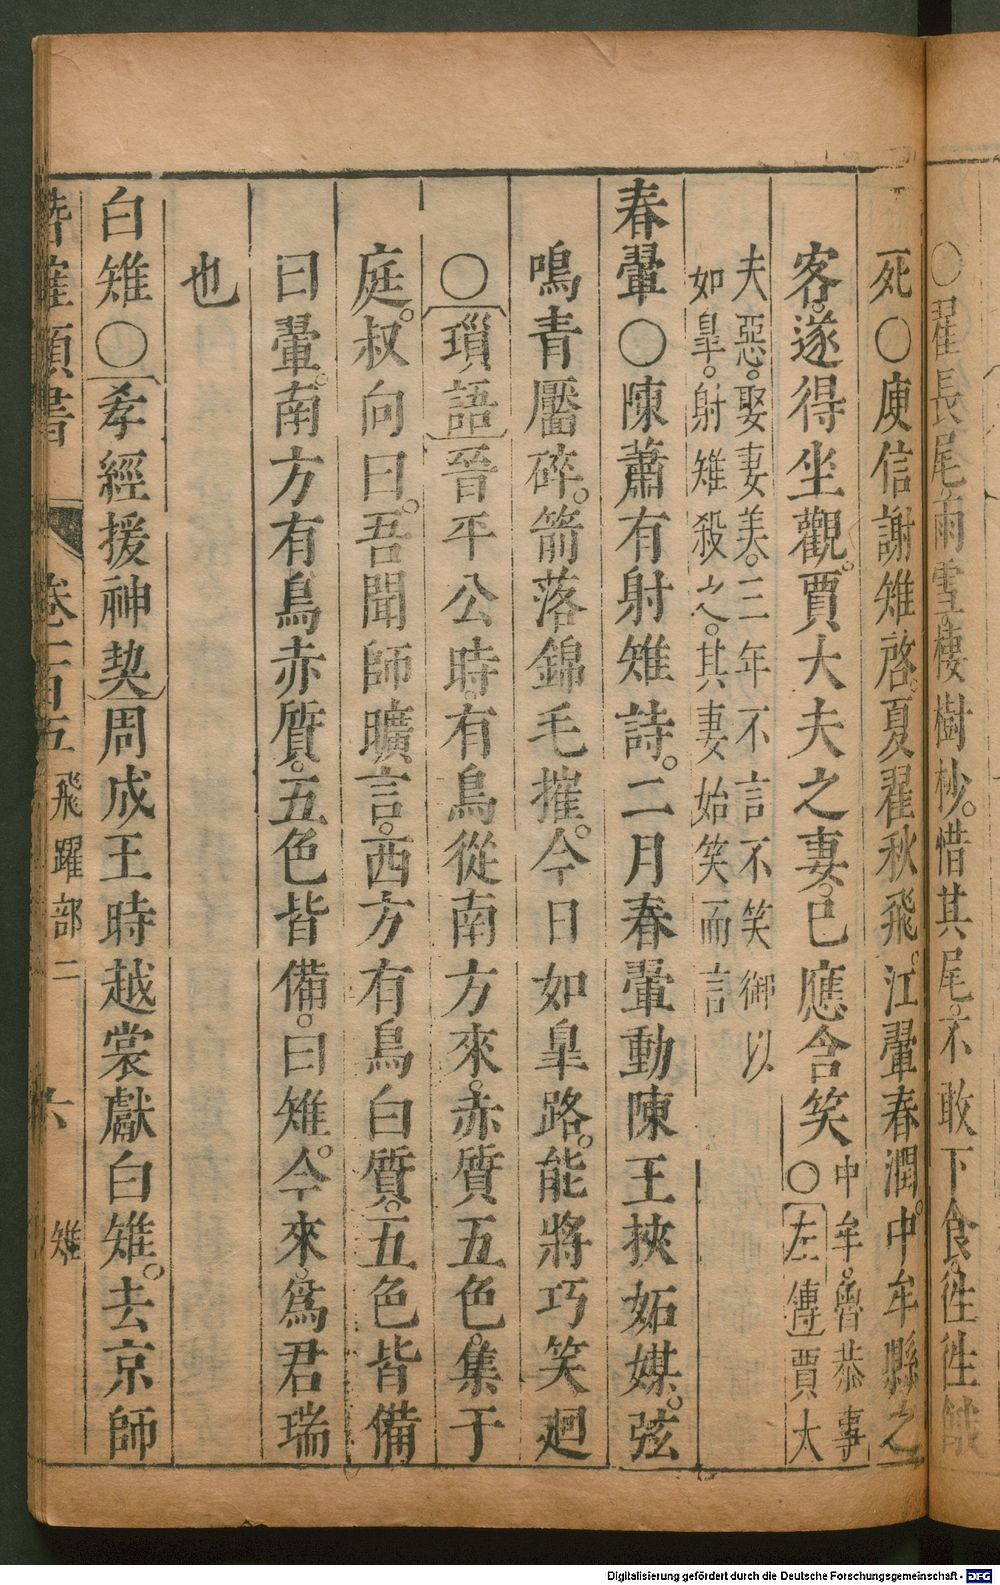 ○翟長尾雨雪棲樹杪惜其尾不敢下食徃徃餓
死○庾信謝雉啓夏翟秋飛江翬春澗中牟縣之
客遂得坐觀賈大夫之妻已應含笑
中牟魯恭事
○左傳賈大
夫惡娶妻美三年不言不笑御以
如臯射雉殺之其妻始笑而言
春翬○陳蕭有射雉詩二月春翬動陳王挾妬媒弦
鳴青靨碎箭落錦毛摧今日如臯路能將巧笑廻
○瑣語晉平公時有鳥從南方來赤質五色集于
庭叔向曰吾聞師曠言西方有鳥白質五色皆備
曰翬南方有鳥赤質五色皆備曰雉今來爲君瑞
也
白雉○孝經援神契周成王時越裳獻白雉去京師
類書 卷一百五 飛躍部二 六 雉
Digitalisierung gefördert durch die Deutsche Forschungsgemeinschaft - DFG